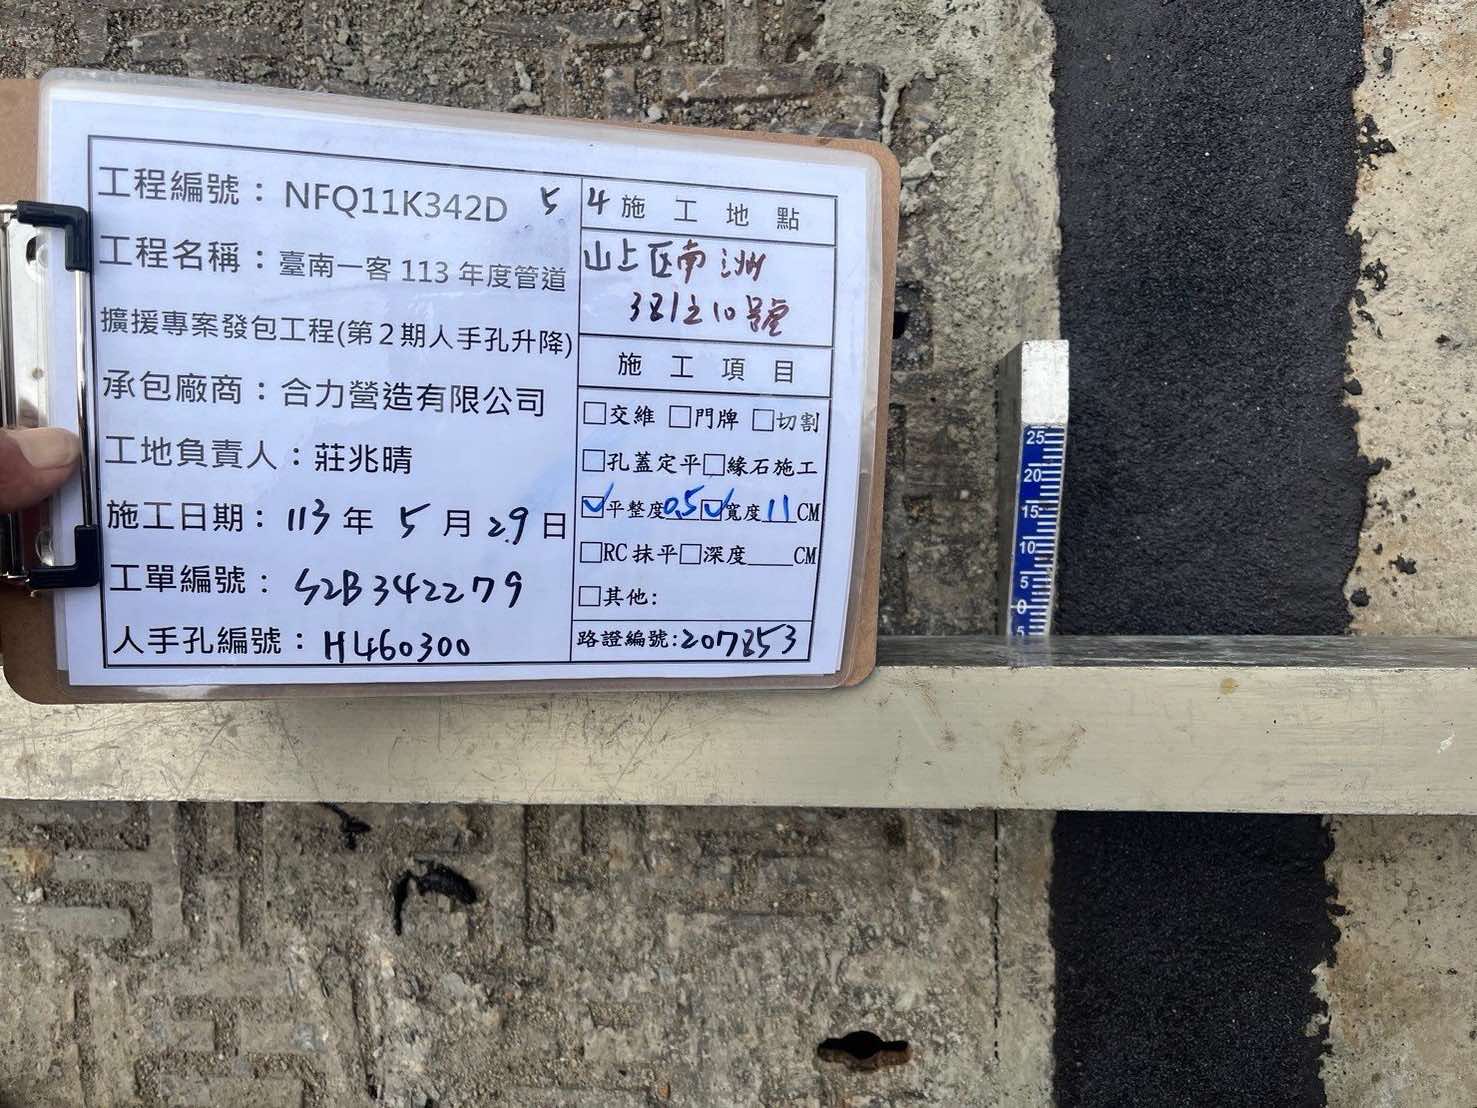 工程編號：NFQ11K342D 5
工程名稱：臺南一客 113 年度管道
擴援專案發包工程(第2期人手孔升降)
承包廠商：合力營造有限公司
工地負責人：莊兆晴
施工日期：113年 5月29日
工單編號：S2B342279
人手孔編號：H460300
4 施工地點
山上區南洲
381之10號
施工項目
□交維 □門牌 □切割
□孔蓋定平□緣石施工
☑平整度0.5☑寬度11CM
□RC抹平□深度____CM
□其他:
路證編號:207853
25
20
15
10
5
0
5